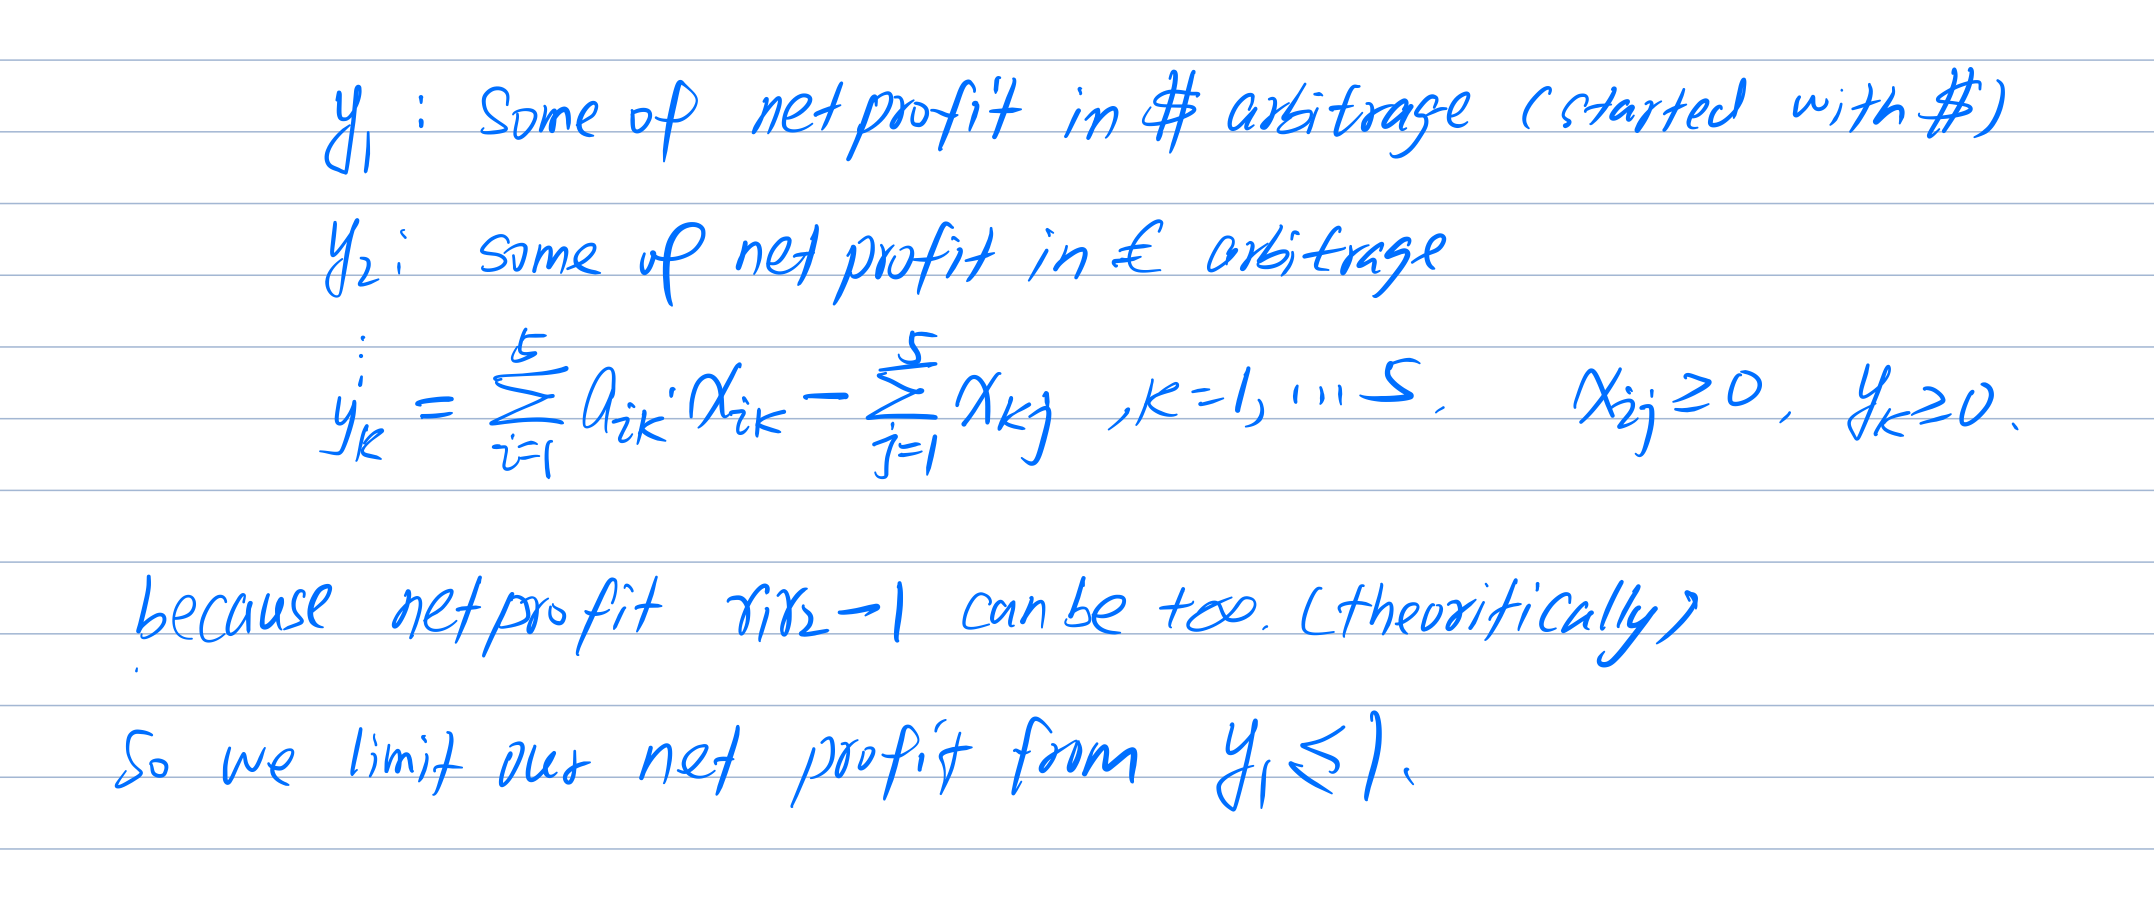 y₁ : Some of net profit in $ arbitrage (started with $)
y₂ : some of net profit in € arbitrage
⋮
yₖ = ∑_{i=1}^{5} a_{ik} · x_{ik} − ∑_{j=1}^{5} x_{kj} , k=1, ... 5. x_{ij} ≥ 0, yₖ ≥ 0.
because net profit r₁r₂−1 can be +∞. (theoritically)
So we limit our net profit from y₁ ≤ 1.